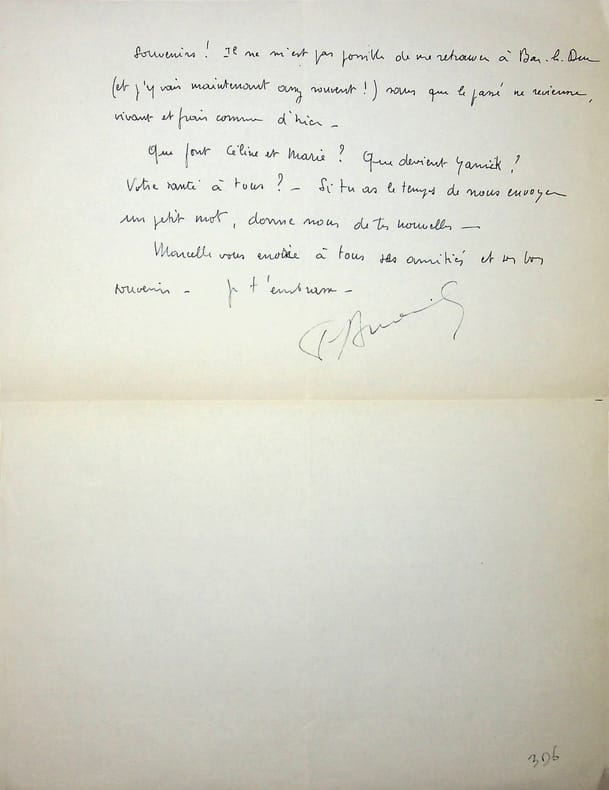 souvenirs ! Il ne m'est pas possible de me retrouver à Bar-le-Duc
(et j'y vais maintenant assez souvent !) sans que le passé ne revienne,
vivant et frais comme d'hier –
Que font Céline et Marie ? Que devient Yannick ?
Votre santé à tous ? – Si tu as le temps de nous envoyer
un petit mot, donne nous de tes nouvelles —
Marcelle vous envoie à tous ses amitiés et ses bons
souvenirs – Je t'embrasse –
396